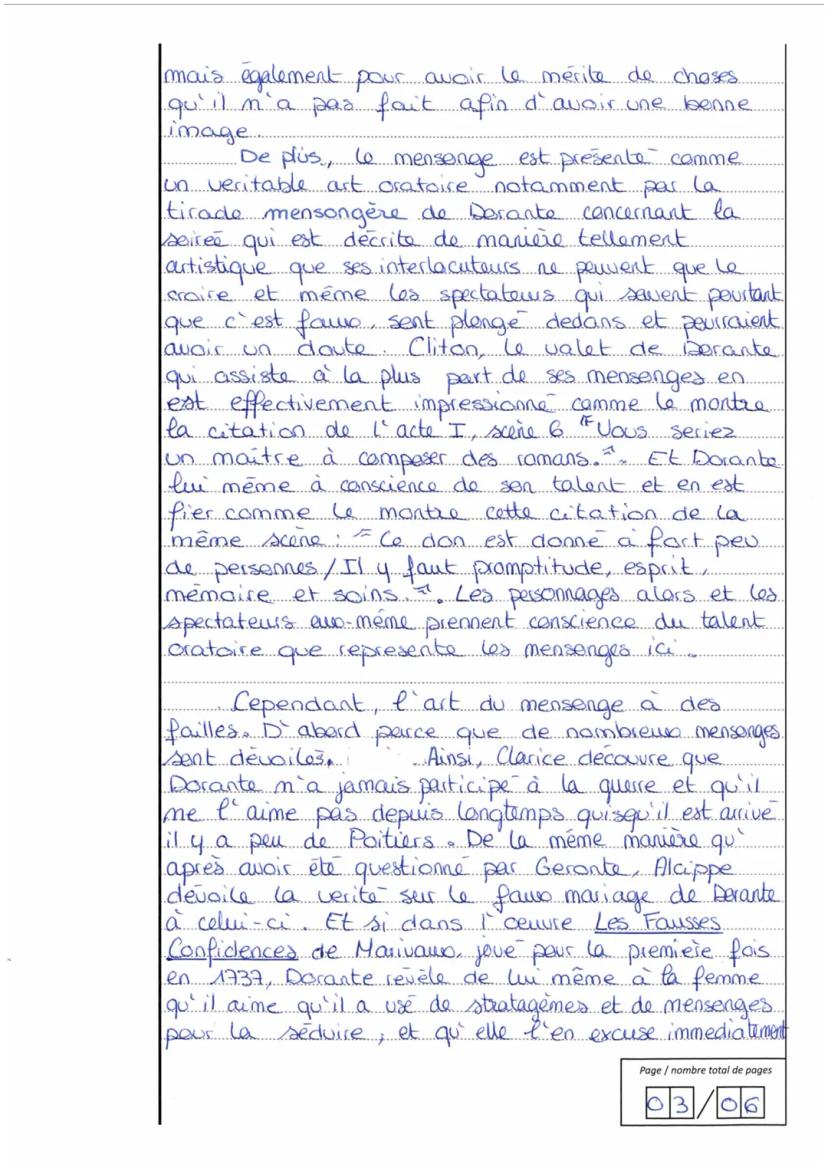 mais également pour avoir le mérite de choses
qu'il n'a pas fait afin d'avoir une bonne
image.
De plus, le mensonge est présenté comme
un veritable art oratoire notamment par la
tirade mensongère de Dorante concernant la
soirée qui est décrite de manière tellement
artistique que ses interlocuteurs ne peuvent que le
croire et même les spectateurs qui savent pourtant
que c'est faux, sont plongé dedans et pourraient
avoir un doute. Cliton, le valet de Dorante
qui assiste à la plus part de ses mensonges en
est effectivement impressionné comme le montre
la citation de l'acte I, scène 6 "Vous seriez
un maître à composer des romans.". Et Dorante
lui même à conscience de son talent et en est
fier comme le montre cette citation de la
même scène : "Ce don est donné à fort peu
de personnes / Il y faut promptitude, esprit,
mémoire et soins.". Les personnages alors et les
spectateurs eux-même prennent conscience du talent
oratoire que represente les mensonges ici.
Cependant, l'art du mensonge à des
failles. D'abord parce que de nombreux mensonges
sont dévoilés. Ainsi, Clarice découvre que
Dorante n'a jamais participé à la guerre et qu'il
ne l'aime pas depuis longtemps puisqu'il est arrivé
il y a peu de Poitiers. De la même manière qu'
après avoir été questionné par Geronte, Alcippe
dévoile la verité sur le faux mariage de Dorante
à celui-ci. Et si dans l'oeuvre Les Fausses
Confidences de Marivaux, joué pour la première fois
en 1737, Dorante révèle de lui même à la femme
qu'il aime qu'il a usé de stratagèmes et de mensonges
pour la séduire, et qu'elle l'en excuse immediatement
Page / nombre total de pages
03/06